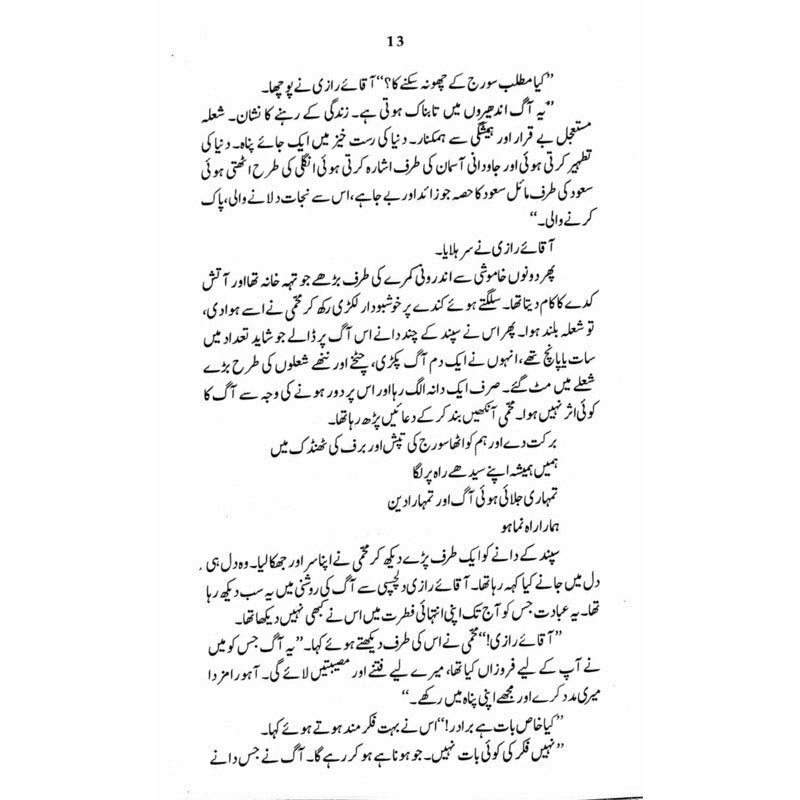 13
”کیا مطلب سورج کے چھونہ سکنے کا؟“ آقائے رازی نے پوچھا۔
”یہ آگ اندھیروں میں تابناک ہوتی ہے۔ زندگی کے رہنے کا نشان۔ شعلہ
مستعجل بے قرار اور ہمیشگی سے ہمکنار۔ دنیا کی رست خیز میں ایک جائے پناہ۔ دنیا کی
تطہیر کرتی ہوئی اور جاودانی آسمان کی طرف اشارہ کرتی ہوئی انگلی کی طرح اٹھتی ہوئی
سعود کی طرف مائل سعود کا حصہ جو زائد اور بے جا ہے، اس سے نجات دلانے والی، پاک
کرنے والی۔“
آقائے رازی نے سر ہلایا۔
پھر دونوں خاموشی سے اندرونی کمرے کی طرف بڑھے جو تہہ خانہ تھا اور آتش
کدے کا کام دیتا تھا۔ سلگتے ہوئے کندے پر خوشبودار لکڑی رکھ کر مخمی نے اسے ہوا دی،
تو شعلہ بلند ہوا۔ پھر اس نے سپند کے چند دانے اس آگ پر ڈالے جو شاید تعداد میں
سات یا پانچ تھے، انہوں نے ایک دم آگ پکڑی، چٹخے اور ننھے شعلوں کی طرح بڑے
شعلے میں مٹ گئے۔ صرف ایک دانہ الگ رہا اور اس پر دور ہونے کی وجہ سے آگ کا
کوئی اثر نہیں ہوا۔ مخمی آنکھیں بند کر کے دعائیں پڑھ رہا تھا۔
برکت دے اور ہم کو اٹھا سورج کی تپش اور برف کی ٹھنڈک میں
ہمیں ہمیشہ اپنے سیدھے راہ پر لگا
تمہاری جلائی ہوئی آگ اور تمہارا دین
ہمارا راہ نما ہو
سپند کے دانے کو ایک طرف پڑے دیکھ کر مخمی نے اپنا سر اور جھکا لیا۔ وہ دل ہی
دل میں جانے کیا کہہ رہا تھا۔ آقائے رازی دلچسپی سے آگ کی روشنی میں یہ سب دیکھ رہا
تھا۔ یہ عبادت جس کو آج تک اپنی انتہائی فطرت میں اس نے کبھی نہیں دیکھا تھا۔
”آقائے رازی!“ مخمی نے اس کی طرف دیکھتے ہوئے کہا۔ ”یہ آگ جس کو میں
نے آپ کے لیے فروزاں کیا تھا، میرے لیے فتنے اور مصیبتیں لائے گی۔ آہورامزدا
میری مدد کرے اور مجھے اپنی پناہ میں رکھے۔“
”کیا خاص بات ہے برادر!“ اس نے بہت فکر مند ہوتے ہوئے کہا۔
”نہیں فکر کی کوئی بات نہیں۔ جو ہونا ہے ہو کر رہے گا۔ آگ نے جس دانے